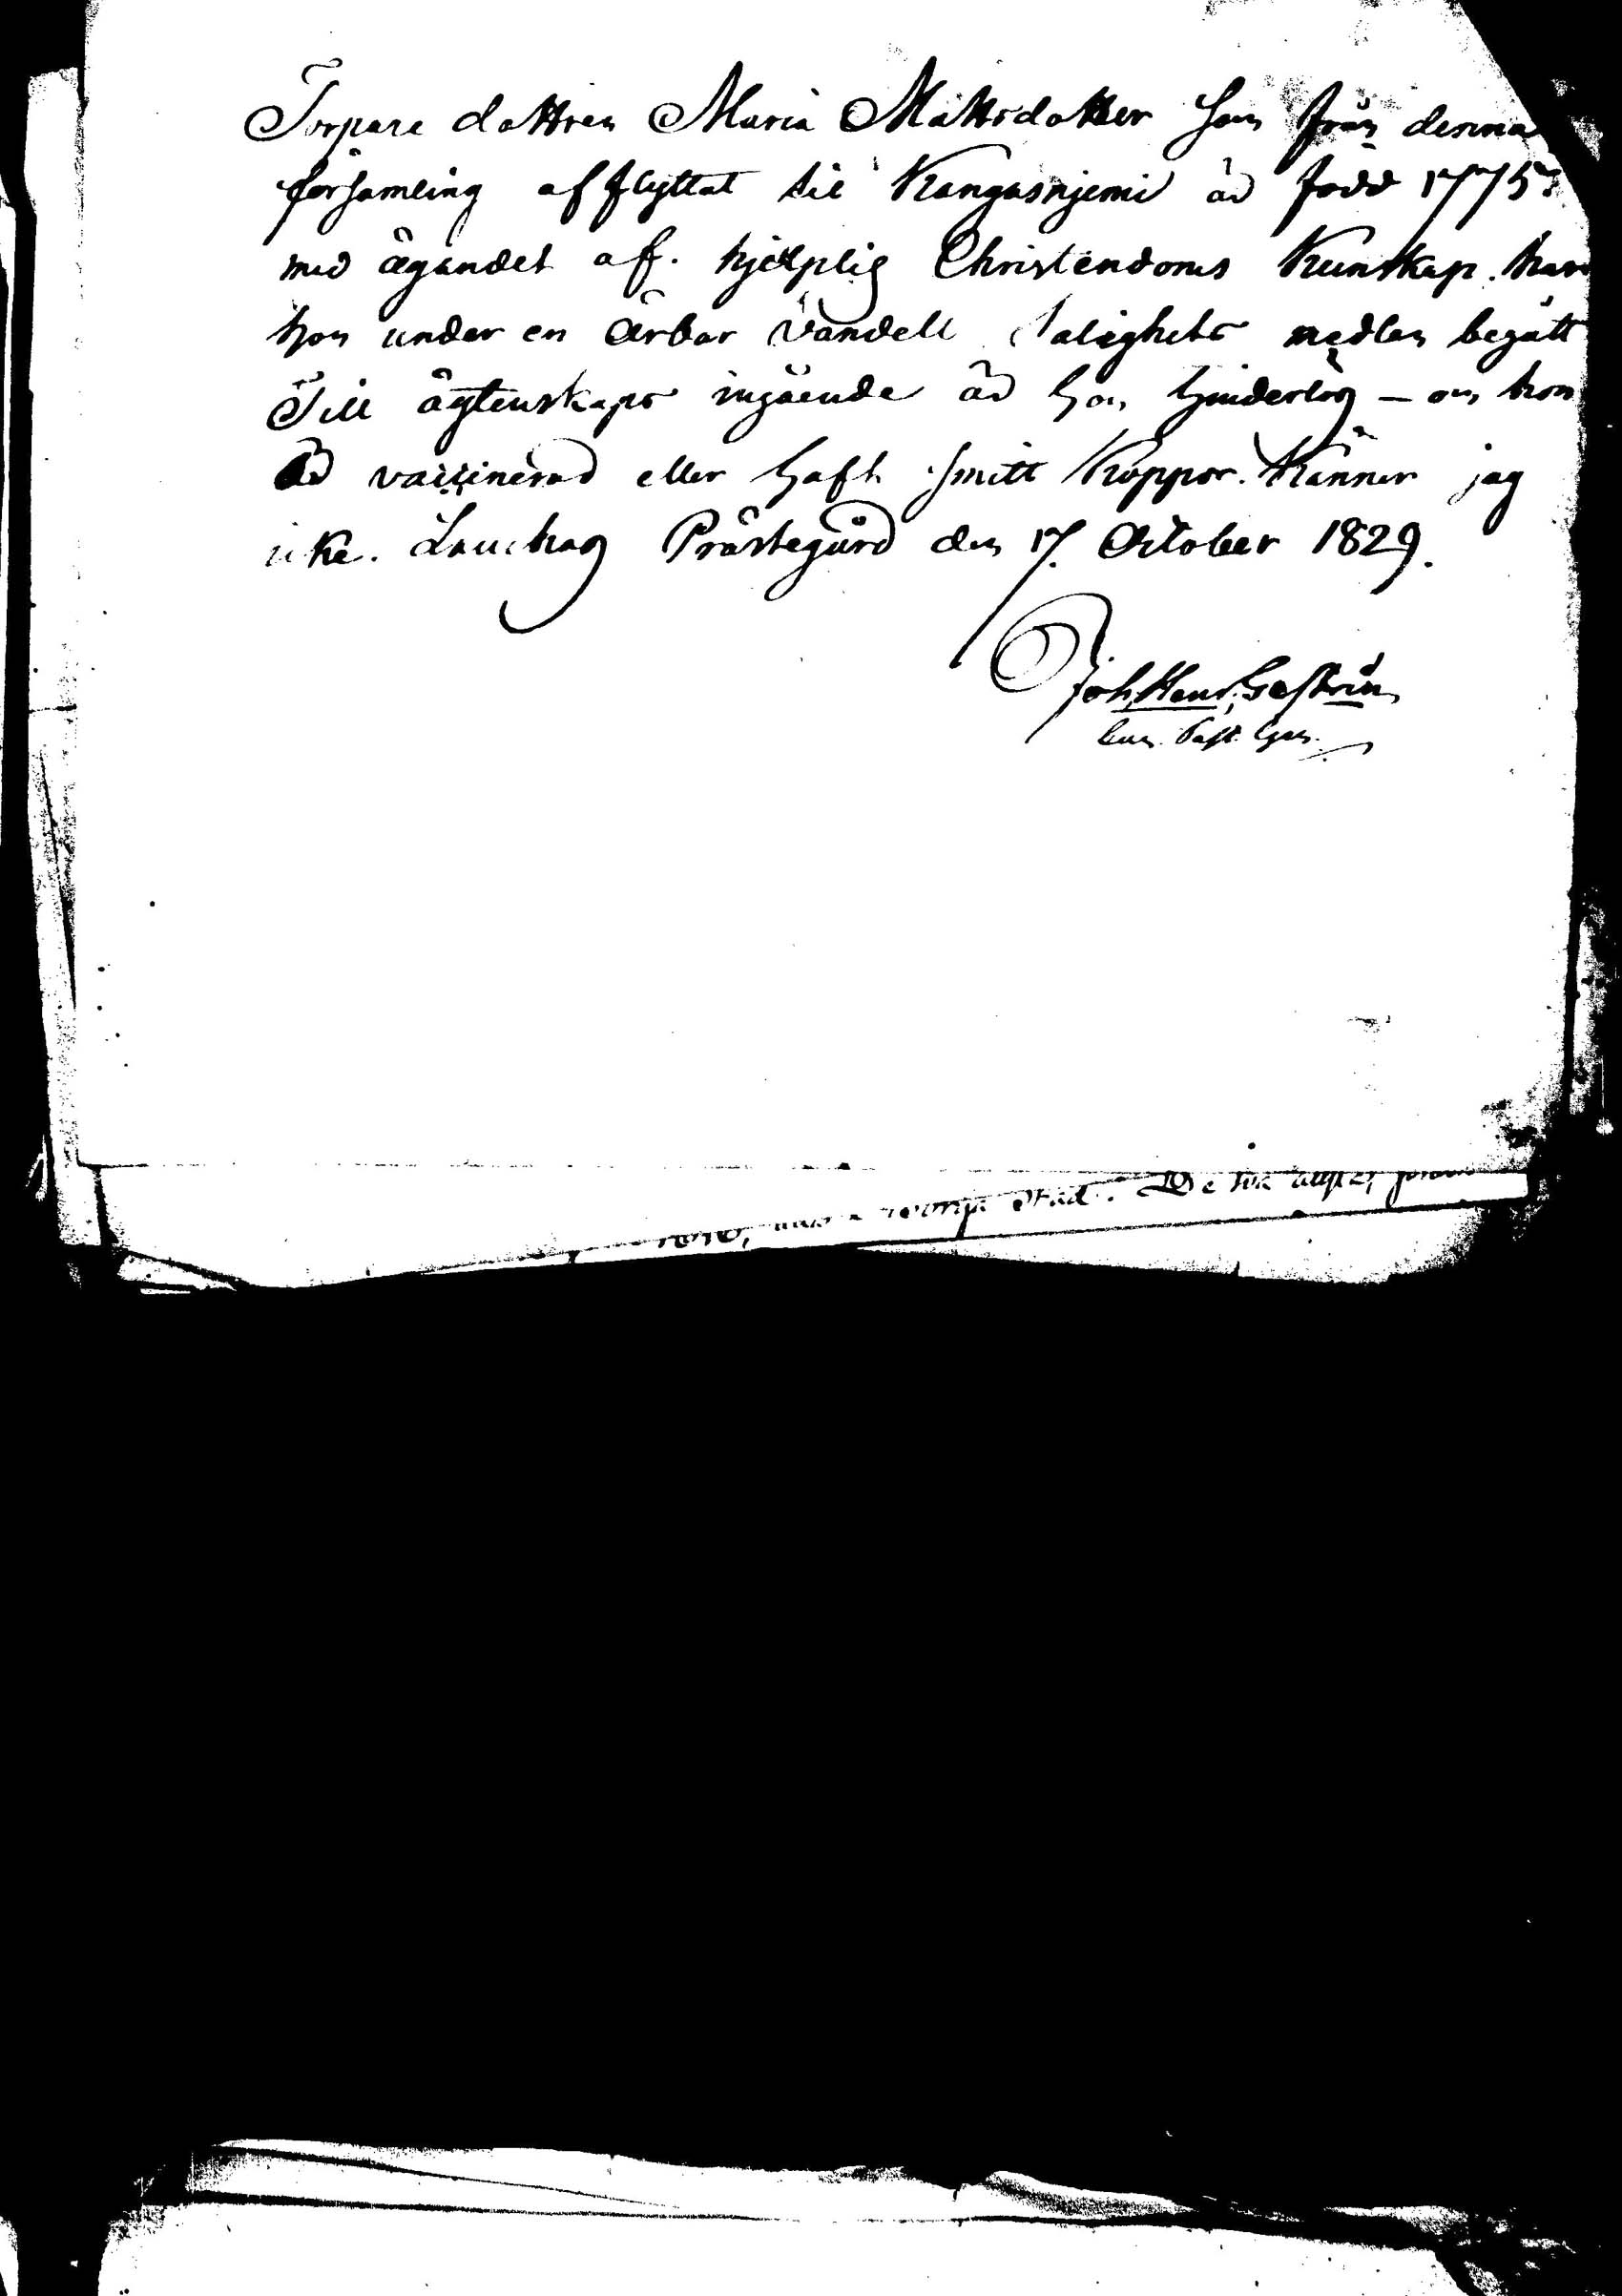 Torpare dottren Maria Mattsdotter som från denna
församling afflyttat til Kangasnjemi är född 1775:
med ägandet af. hjelplig Christendoms Kunskap. har
hon under en ärbar vandell Salighets medlen begått
Till ägtenskaps ingående är hon hinderlös – om hon
är vaccinerad eller haft smitt Koppor. Känner jag
icke. Prästegård den 17. October 1829.
Joh. Henr. Gestrin
Past.
Stad. De